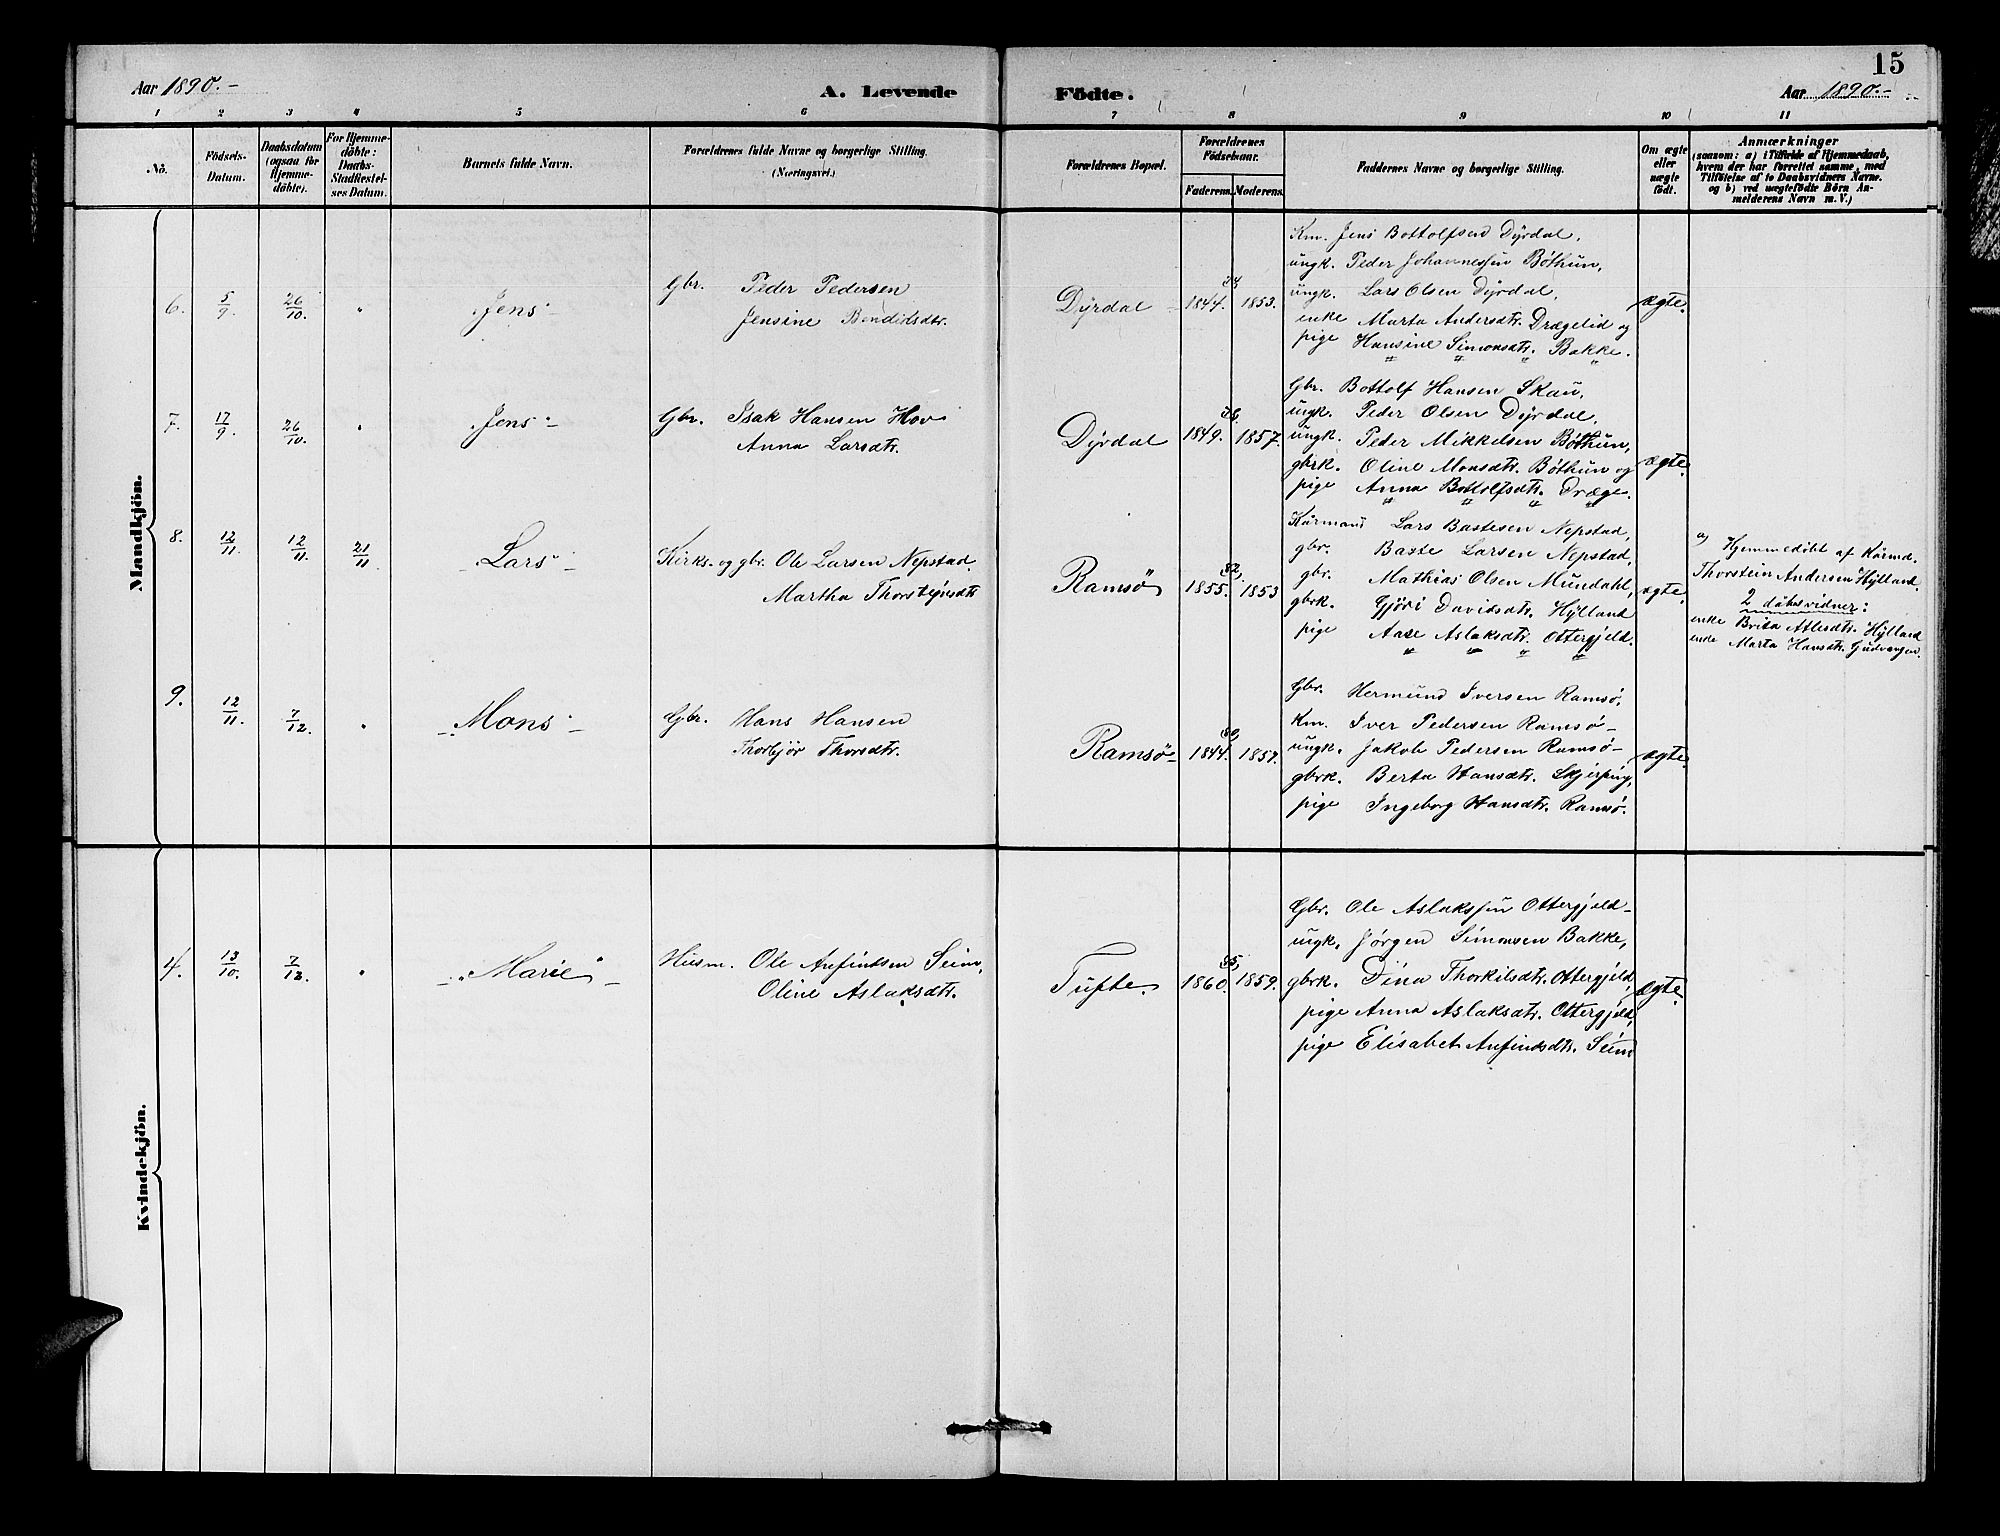 15
Aar 1890.-
A. Levende
Födte.
Aar 1890.-
1 2 3 4 5 6 7 8 9 10 11
No.
Födsels-
Datum.
Daabsdatum
(ogsaa for
Hjemme-
döbte).
For Hjemme-
döbte:
Daabs-
Stadfæstel-
ses Datum.
Barnets fulde Navn.
Forældrenes fulde Navne og borgerlige Stilling.
(Næringsvei.)
Forældrenes Bopæl.
Forældrenes
Födselsaar.
Faderens. Moderens.
Faddernes Navne og borgerlige Stilling.
Om ægte
eller
uægte
födt.
Anmærkninger
(saasom: a) i Tilfælde af Hjemmedaab,
hvem der har forrettet samme, med
Tilföielse af to Daabsvidners Navne.
og b) ved uægtefödte Börn An-
melderens Navn m. V.)
Mandkjön.
6. 5/9 26/10 " Jens
Gbr. Peder Pedersen
Jensine Bendiksdtr.
Dyrdal 1844. 1853.
Km. Jens Bottolfsen Dyrdal,
ungk. Peder Johannessen Bøthun,
ungk. Lars Olsen Dyrdal,
enke Marta Andersdtr. Drægelid og
pige Hansine Simonsdtr. Bakke.
ægte.
7. 17/9 26/10 " Jens
Gbr. Isak Hansen Hov
Anna Larsdtr.
Dyrdal 1849. 1857.
Gbr. Bottolf Hansen Skau,
ungk. Peder Olsen Dyrdal,
ungk. Peder Mikkelsen Bøthun,
gbrk. Oline Monsdtr. Bøthun og
pige Anna Bottolfsdtr. Dræge.
ægte.
8. 12/11 12/11 21/11 Lars
Kirks.- og gbr. Ole Larsen Nepstad.
Martha Thorsteinsdtr
Ramsø 1855. 82, 1853
Kårmand Lars Bastesen Nepstad,
gbr. Baste Larsen Nepstad,
gbr. Mathias Olsen Mundahl,
gbrk. Gjøri Davidsdtr. Hylland
pige Aase Aslaksdtr. Ottergjeld.
ægte.
a) Hjemmedøbt af Kårmd.
Thorstein Andersen Hylland.
2 dåbsvidner:
enke Brita Atlesdtr. Hylland
enke Marta Hansdtr. Gudvangen.
9. 12/11. 7/12. " Mons
Gbr. Hans Hansen
Thorbjør Thorsdtr.
Ramsø 1844. 80, 1857.
Gbr. Hermund Iversen Ramsø,
Km. Iver Pedersen Ramsø
ungk. Jakob Pedersen Ramsø
gbrk. Berta Hansdtr. Skjerping,
pige Ingeborg Hansdtr. Ramsø.
ægte.
Kvindekjön.
4. 13/10. 7/12. " Marie
Husm. Ole Anfindsen Seim,
Oline Aslaksdtr.
Tufte. 1860. 85, 1859.
Gbr. Ole Aslakssen Ottergjeld
ungk. Jørgen Simonsen Bakke,
gbrk. Dina Thorkilsdtr. Ottergjeld,
pige Anna Aslaksdtr. Ottergjeld,
pige Elisabet Anfindsdtr. Seim
ægte.